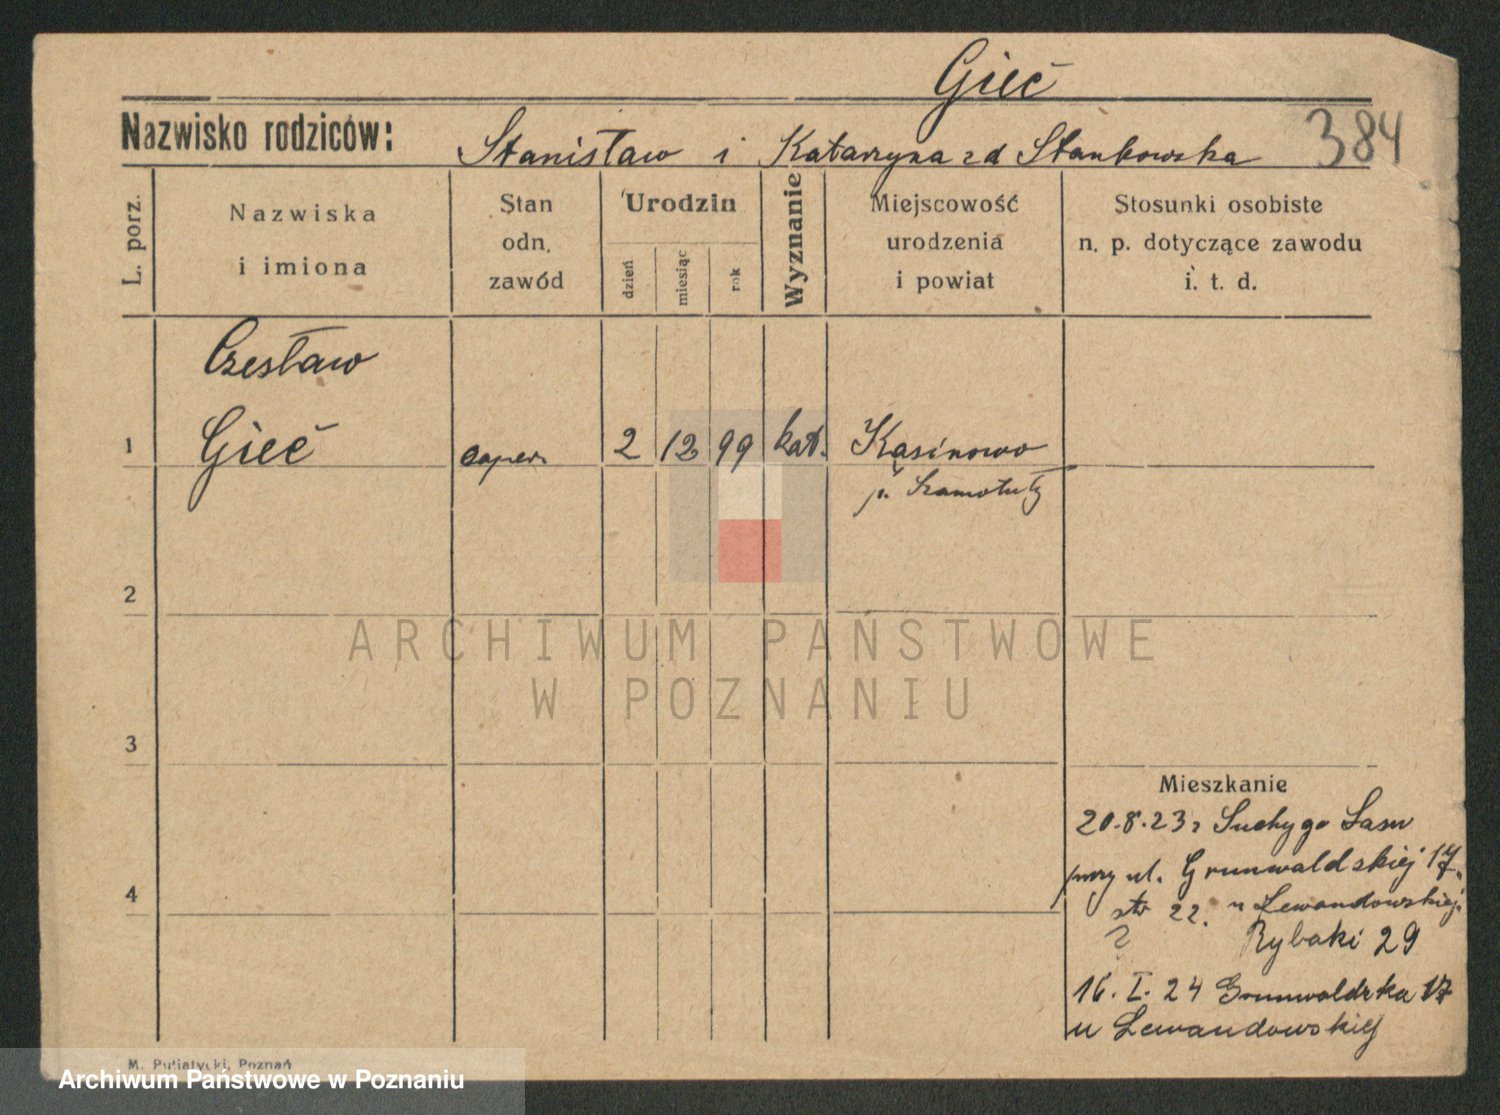 Gieć
Nazwisko rodziców: Stanisław i Katarzyna zd Stankowska 384
L. porz.
Nazwiska
i imiona
Stan
odn.
zawód
Urodzin
dzień
miesiąc
rok
Wyznanie
Miejscowość
urodzenia
i powiat
Stosunki osobiste
n. p. dotyczące zawodu
i. t. d.
Czesław
1 Gieć 2 12 99 kat. Kąsinowo
p. Szamotuły
2
ARCHIWUM PAŃSTWOWE
W POZNANIU
3
Mieszkanie
20.8.23 z Suchygo Lasu
przy ul. Grunwaldskiej 17.
22. u Lewandowskiej
? Rybaki 29
4
16. I. 24 Grunwaldzka 17
u Lewandowskiej
M. Putiatycki, Poznań
Archiwum Państwowe w Poznaniu